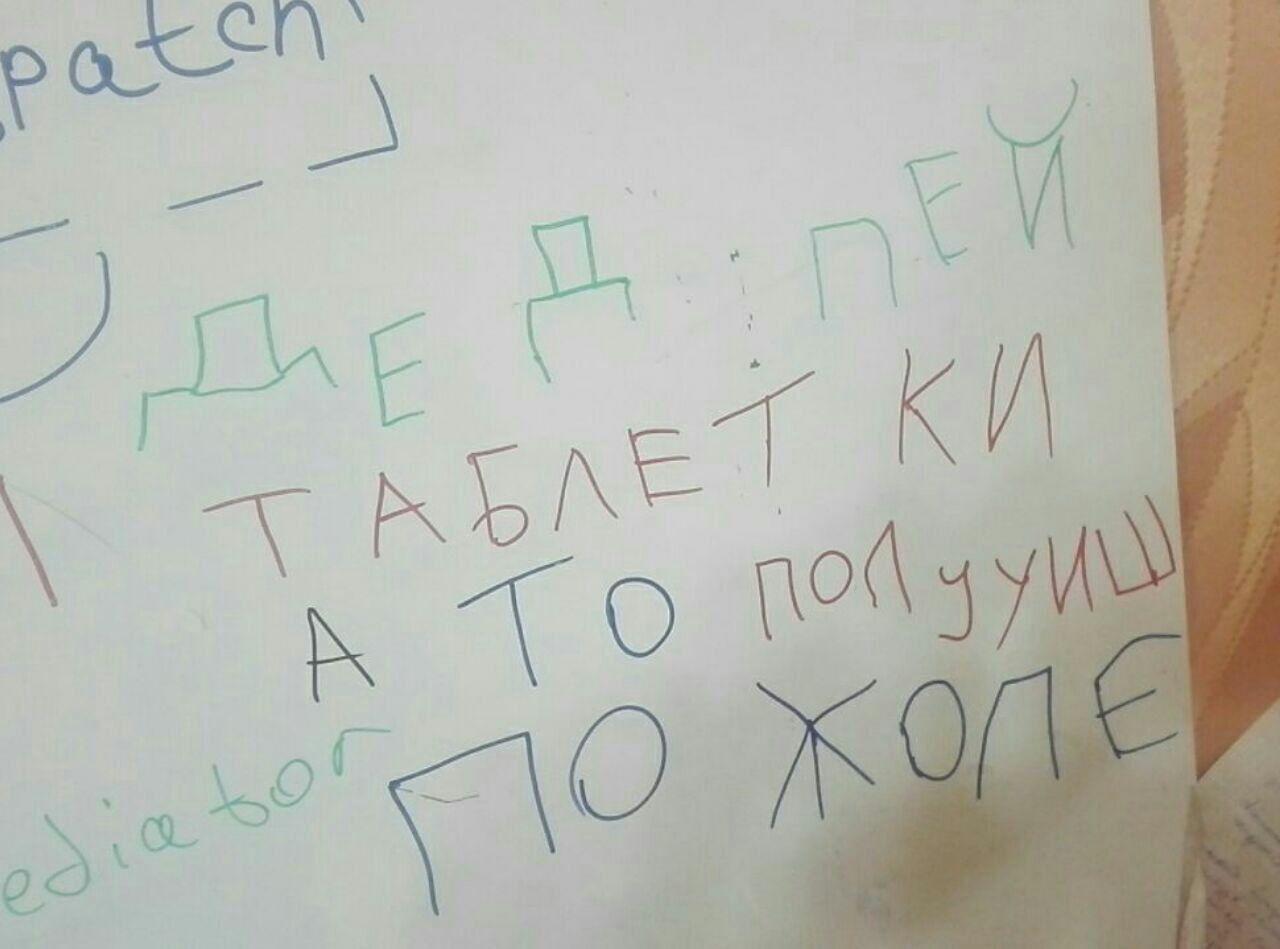 patch
ДЕД ПЕЙ
ТАБЛЕТКИ
А ТО ПОЛУУИШ
ПО ЖОПЕ
ediator